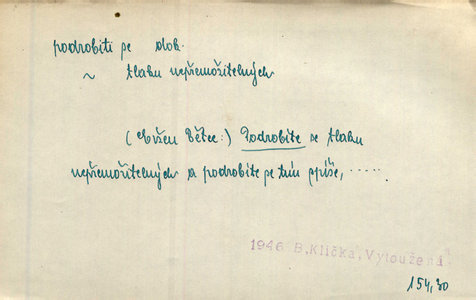 podrobiti se dok.
~ tlaku nepřemožitelných
(Evžen Bětec:) Podrobíte se tlaku
nepřemožitelných a podrobíte se tím spíše, .....
1946 B.Klička, Vytoužená
154,30